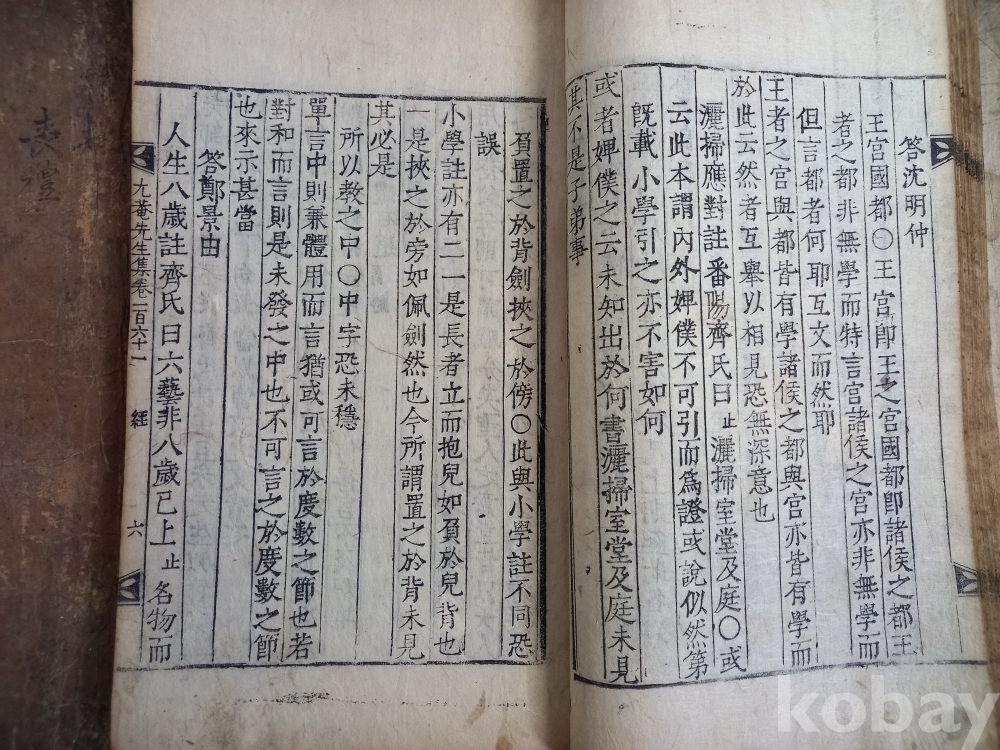 答沈明仲
王宮國都○王宮卽王之宮國都卽諸侯之都王
者之都非無學而特言宮諸侯之宮亦非無學而
但言都者何耶互文而然耶
王者之宮與都皆有學諸侯之都與宮亦皆有學而
於此云然者互舉以相見恐無深意也
灑掃應對註番陽齊氏曰止灑掃室堂及庭○或
云此本謂內外婢僕不可引而爲證或說似然第
旣載小學引之亦不害如何
或者婢僕之云未知出於何書灑掃室堂及庭未見
其不是子弟事
負置之於背劍挾之於傍○此與小學註不同恐
誤
小學註亦有二一是長者立而抱兒如負於兒背也
一是挾之於旁如佩劍然也今所謂置之於背未見
其必是
所以教之中○中字恐未穩
單言中則兼體用而言猶或可言於度數之節也若
對和而言則是未發之中也不可言之於度數之節
也來示甚當
答鄭景由
人生八歲註齊氏曰六藝非八歲已上止名物而
尤菴先生集卷一百六十一 經 六
喪禮
kobay